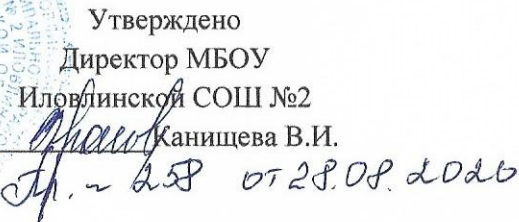 Утверждено
Директор МБОУ
Иловлинской СОШ №2
Канищева В.И.
Пр. № 258 от 28.08.2020